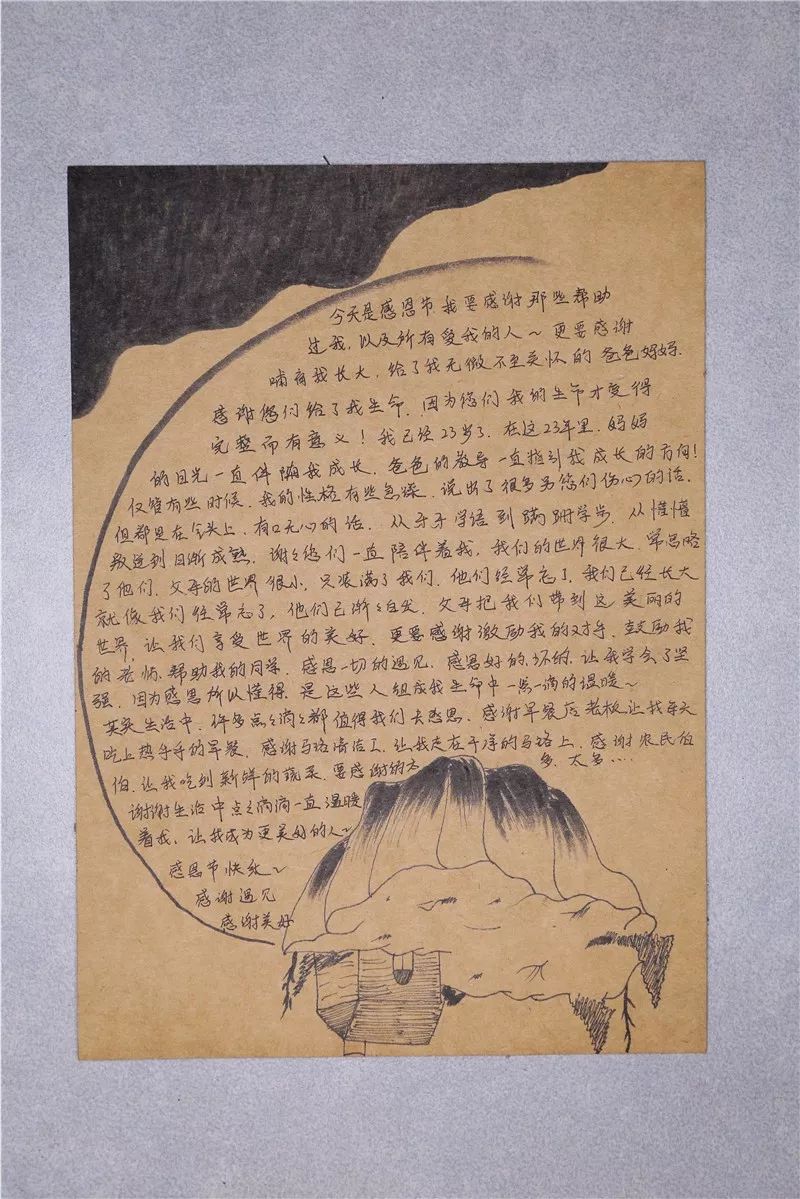 今天是感恩节我要感谢那些帮助
过我,以及所有爱我的人~更要感谢
哺育我长大,给了我无微不至关怀的爸爸妈妈.
感谢您们给了我生命.因为您们我的生命才变得
完整而有意义!我已经23岁了.在这23年里.妈妈
的目光一直伴随我成长.爸爸的教导一直指引我成长的方向!
仅管有些时候.我的性格有些急躁.说出了很多另您们伤心的话.
但都是在气头上,有口无心的话.从牙牙学语到蹒跚学步.从懵懂
叛逆到日渐成熟.谢谢您们一直陪伴着我,我们的世界很大.常忽略
了他们.父母的世界很小,只装满了我们.他们经常忘了,我们已经长大
就像我们经常忘了,他们已渐渐白发.父母把我们带到这美丽的
世界,让我们享受世界的美好.更要感谢激励我的对手,鼓励我
的老师,帮助我的同学.感恩一切的遇见.感恩好的.坏的.让我学会了坚
强.因为感恩所以懂得.是这些人组成我生命中一点一滴的温暖~
其实生活中.许多点々滴々都值得我们去感恩.感谢早餐店老板让我每天
吃上热乎乎的早餐.感谢马路清洁工,让我走在干净的马路上.感谢农民伯
伯.让我吃到新鲜的蔬菜.要感谢的太多.太多....
谢谢生活中点々滴滴一直温暖
着我,让我成为更美好的人~
感恩节快乐~
感谢遇见
感谢美好